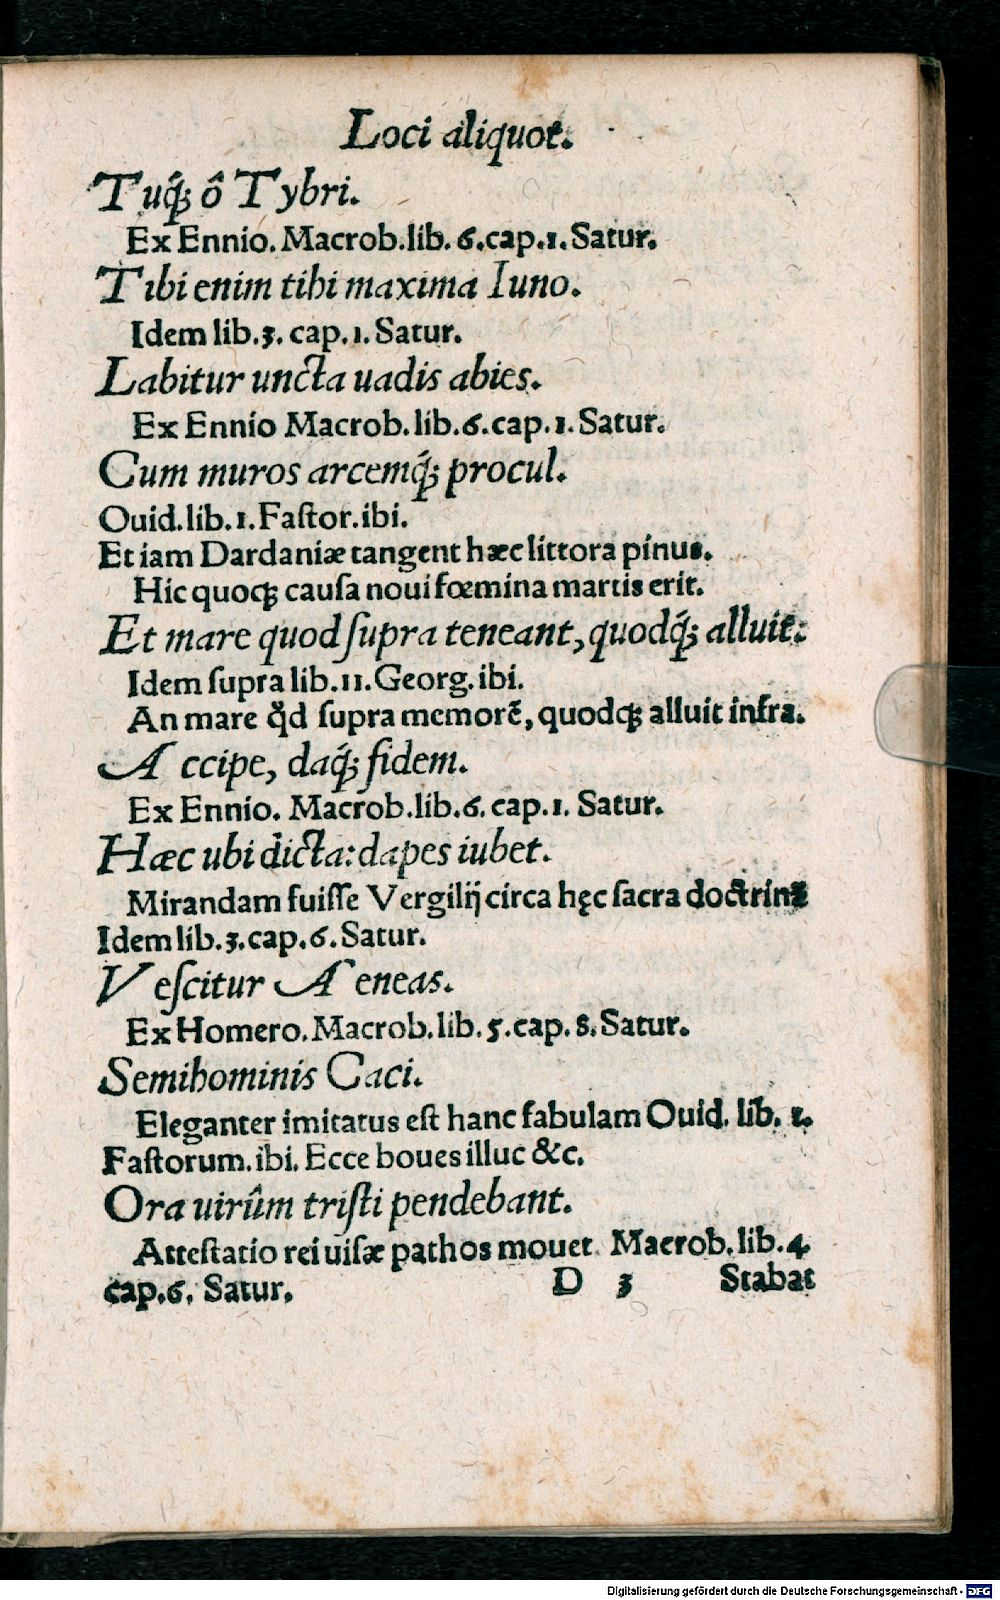 Loci aliquot.
Tuq́; ô Tybri.
Ex Ennio. Macrob.lib. 6.cap.1. Satur.
Tibi enim tibi maxima Iuno.
Idem lib.3. cap.1. Satur.
Labitur uncta uadis abies.
Ex Ennio Macrob.lib.6.cap.1.Satur.
Cum muros arcemq́; procul.
Ouid.lib.1.Faſtor.ibi.
Et iam Dardaniæ tangent hæc littora pinus.
Hic quoqꝫ cauſa noui fœmina martis erit.
Et mare quod ſupra teneant, quodq́; alluit:
Idem ſupra lib.11.Georg.ibi.
An mare qd̛ ſupra memorẽ, quodqꝫ alluit infra.
Accipe, daq́; fidem.
Ex Ennio. Macrob.lib.6.cap.1. Satur.
Hæc ubi dicta: dapes iubet.
Mirandam fuiſſe Vergilij circa hęc ſacra doctrinã
Idem lib.3.cap.6.Satur.
Veſcitur Aeneas.
Ex Homero. Macrob.lib. 5.cap.8.Satur.
Semihominis Caci.
Eleganter imitatus eſt hanc fabulam Ouid. lib. 1.
Faſtorum.ibi. Ecce boues illuc &c.
Ora uirûm triſti pendebant.
Atteſtatio rei uiſæ pathos mouet. Macrob.lib.4.
cap.6. Satur. D 3 Stabat
Digitalisierung gefördert durch die Deutsche Forschungsgemeinschaft - DFG